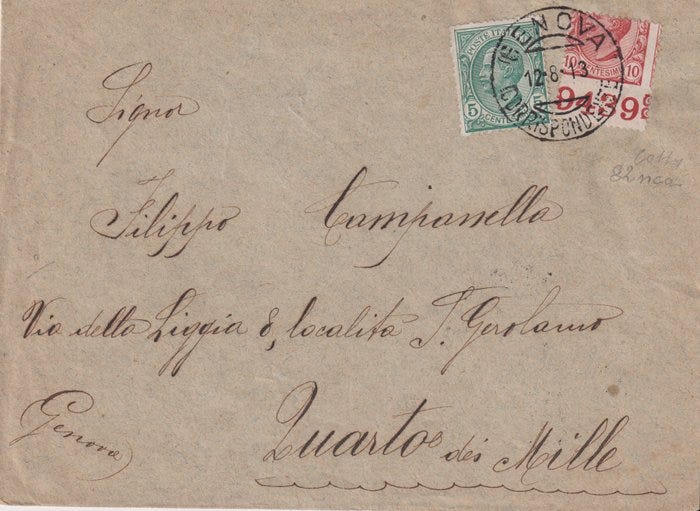 Signor
Filippo Campanella
Via della Liggia 8, località S. Gerolamo
Quarto dei Mille
Genova
POSTE
5
CENT
10 CENTESIMI 10
9439
GENOVA
12·8·13
CORRISPONDENZE